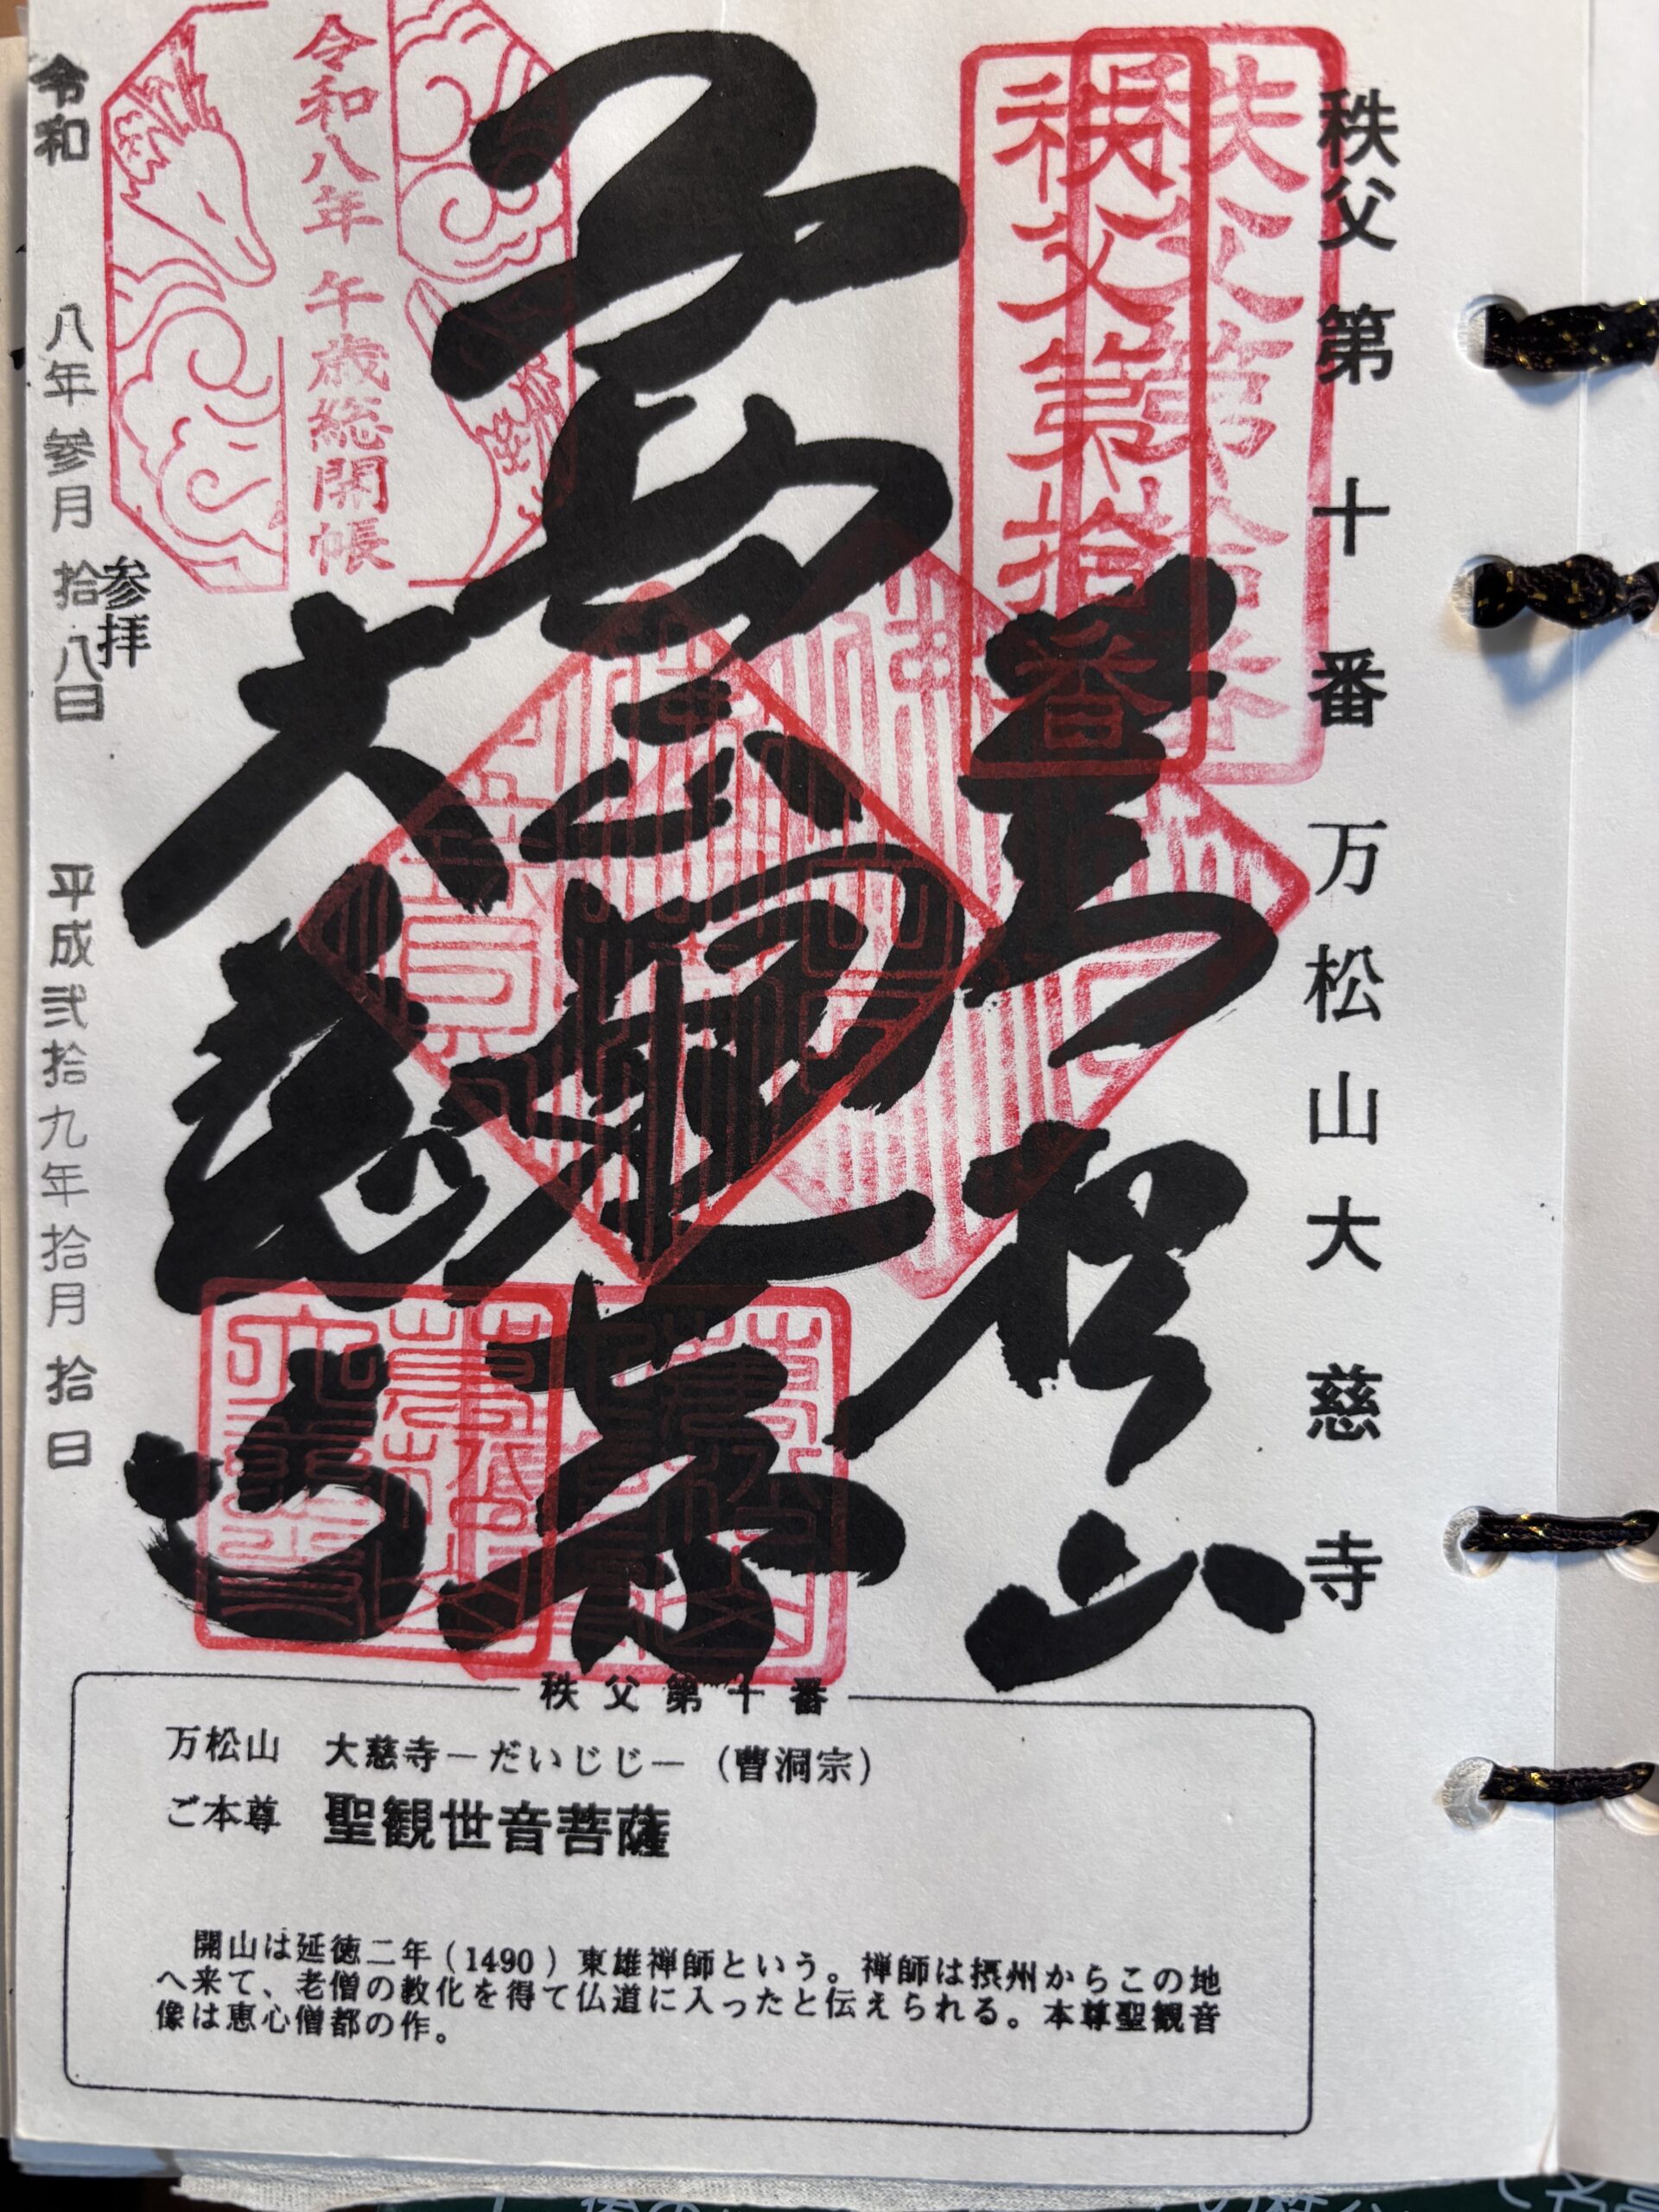 秩父第十番万松山大慈寺
秩父第拾番
秩父第拾番
萬松山
大慈寺
令和八年 午歳総開帳
令和 八年参月拾八日
参拝
平成弐拾九年拾月拾日
秩父第十番
万松山 大慈寺―だいじじ―（曹洞宗）
ご本尊 聖観世音菩薩
開山は延徳二年（1490）東雄禅師という。禅師は摂州からこの地
へ来て、老僧の教化を得て仏道に入ったと伝えられる。本尊聖観音
像は恵心僧都の作。